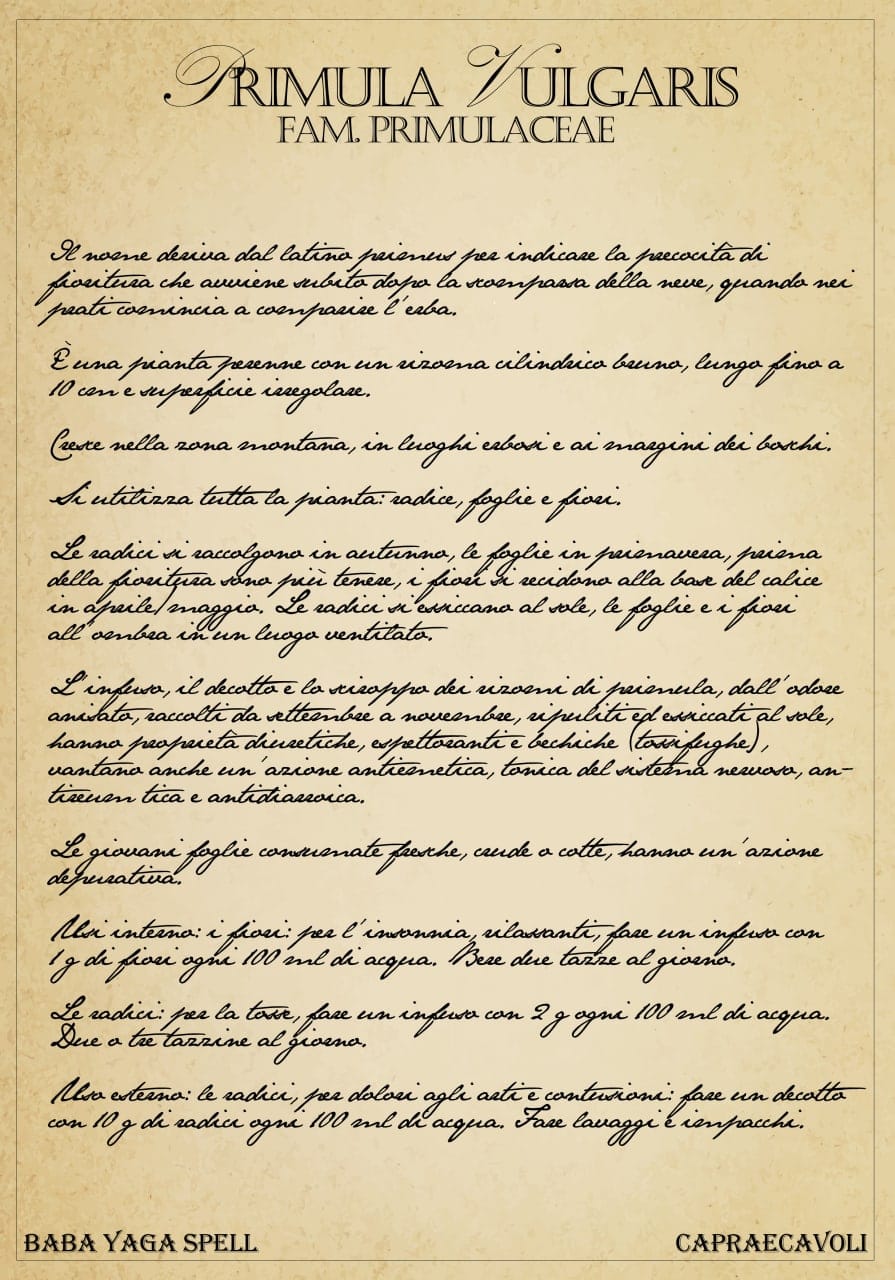 Primula Vulgaris
Fam. Primulaceae
Il nome deriva dal latino primus per indicare la precocità di
fioritura che avviene subito dopo la scomparsa della neve, quando nei
prati comincia a comparire l'erba.
È una pianta perenne con un rizoma cilindrico bruno, lungo fino a
10 cm e superficie irregolare.
Cresce nella zona montana, in luoghi erbosi e ai margini dei boschi.
Si utilizza tutta la pianta: radice, foglie e fiori.
Le radici si raccolgono in autunno, le foglie in primavera, prima
della fioritura sono più tenere, i fiori si recidono alla base del calice
in aprile/maggio. Le radici si essiccano al sole, le foglie e i fiori
all'ombra in un luogo ventilato.
L'infuso, il decotto e lo sciroppo dei rizomi di primula, dall'odore
anisato, raccolti da settembre a novembre, ripuliti ed essiccati al sole,
hanno proprietà diuretiche, espettoranti e bechiche (tossifughe),
vantano anche un'azione antiemetica, tonica del sistema nervoso, an-
tireum tica e antidiarroica.
Le giovani foglie consumate fresche, crude o cotte, hanno un'azione
depurativa.
Usi interno: i fiori: per l'insonnia, rilassanti, fare un infuso con
1 g di fiori ogni 100 ml di acqua. Bere due tazze al giorno.
Le radici: per la tosse, fare un infuso con 2 g ogni 100 ml di acqua.
Due o tre tazzine al giorno.
Uso esterno: le radici, per dolori agli arti e contusioni: fare un decotto
con 10 g di radici ogni 100 ml di acqua. Fare lavaggi e impacchi.
Baba Yaga Spell
Capraecavoli